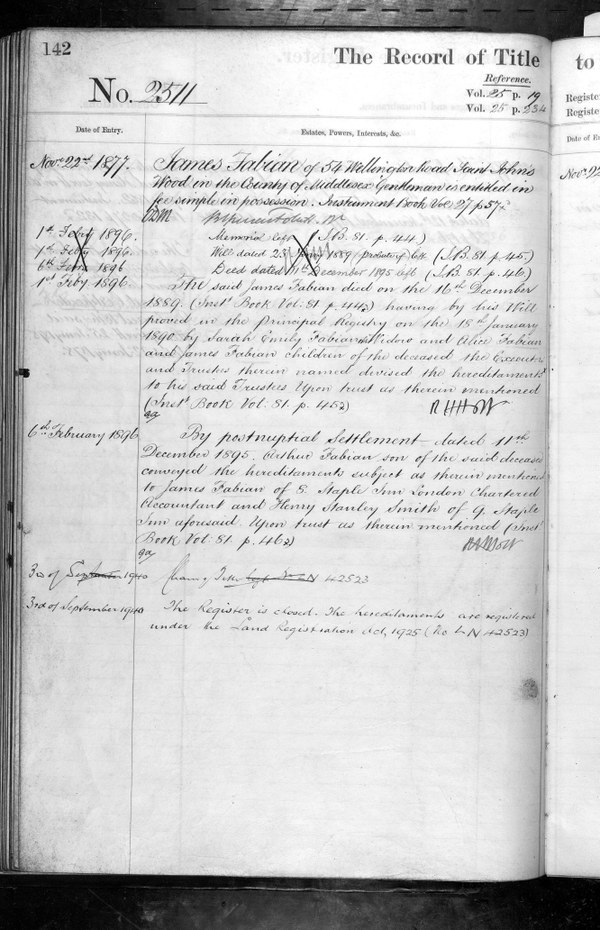 142
The Record of Title
Reference.
No. 2511
Vol. 25 p. 19
Vol. 25 p. 234
Date of Entry.
Estates, Powers, Interests, &c.
Novr 22nd 1877.
James Fabian of 54 Wellington Road Saint John's
Wood in the County of Middlesex Gentleman is entitled in
fee simple in possession. Instrument Book Vol: 27 p 57
1st Feby 1896.
Memorial left (I.B. 81. p. 44.)
1st Feby 1896.
Will dated 1889 probate of left (I.B. 81. p. 45.)
6th 1896
Deed dated 11th December 1895 left (I.B. 81. p. 46)
1st Feby 1896
The said James Fabian died on the 16th December
1889. (Inst Book Vol: 81. p. 44) having by his Will
proved in the Principal Registry on the 18th January
1890 by Sarah Emily Fabian Widow and Alice Fabian
and James Fabian children of the deceased the Executors
and Trustees therein named devised the hereditaments
to his said Trustees Upon trust as therein mentioned
(Inst Book Vol: 81. p. 45)
6th February 1896
By postnuptial Settlement dated 11th
December 1895. Arthur Fabian son of the said deceased
conveyed the hereditaments subject as therein mentioned
to James Fabian of 8. Staple Inn London Chartered
Accountant and Henry Stanley Smith of 9. Staple
Inn aforesaid. Upon trust as therein mentioned (Inst
Book Vol: 81. p. 46)
3rd of September 1940
LN 42523
3rd of September 1940
The Register is closed. The hereditaments are registered
under the Land Registration Act, 1925 (No. LN 42523)
to
Register
Registe
Date of En
Novr 22